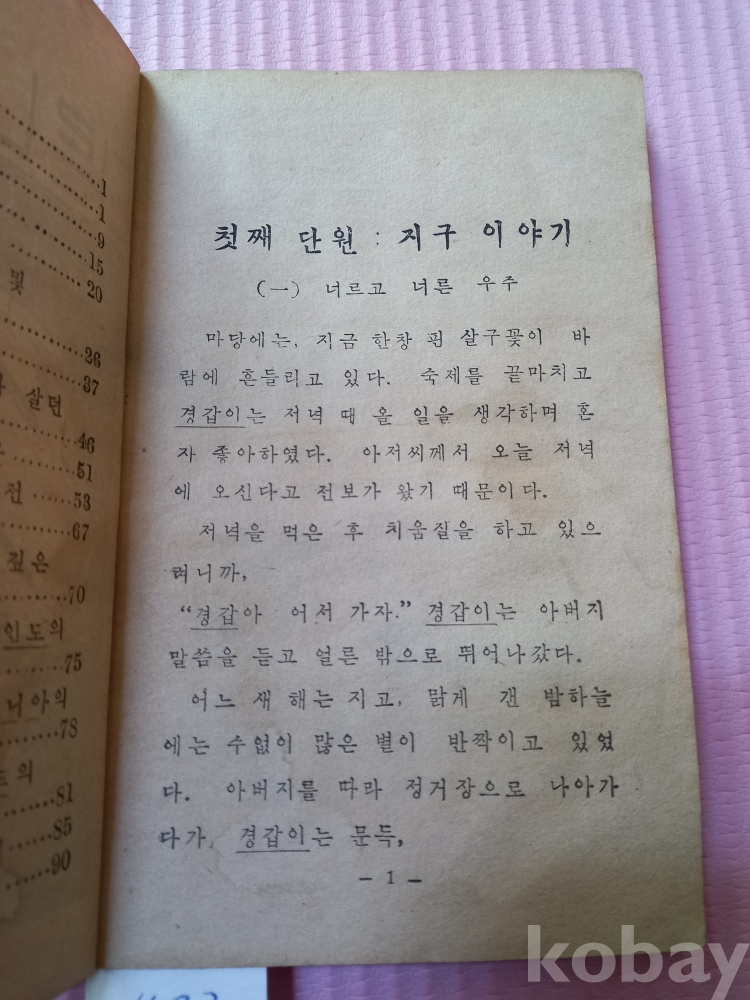 1
1
9
15
20
및
26
37
살던
46
51
전 53
67
깊은
70
인도의
75
니아의
78
도의
81
85
90
첫째 단원 : 지구 이야기
(一) 너르고 너른 우주
마당에는, 지금 한창 핀 살구꽃이 바
람에 흔들리고 있다. 숙제를 끝마치고
경갑이는 저녁 때 올 일을 생각하며 혼
자 좋아하였다. 아저씨께서 오늘 저녁
에 오신다고 전보가 왔기 때문이다.
저녁을 먹은 후 치움질을 하고 있으
려니까,
“경갑아 어서 가자.” 경갑이는 아버지
말씀을 듣고 얼른 밖으로 뛰어나갔다.
어느 새 해는 지고, 맑게 갠 밤하늘
에는 수없이 많은 별이 반짝이고 있었
다. 아버지를 따라 정거장으로 나아가
다가, 경갑이는 문득,
– 1 –
kobay